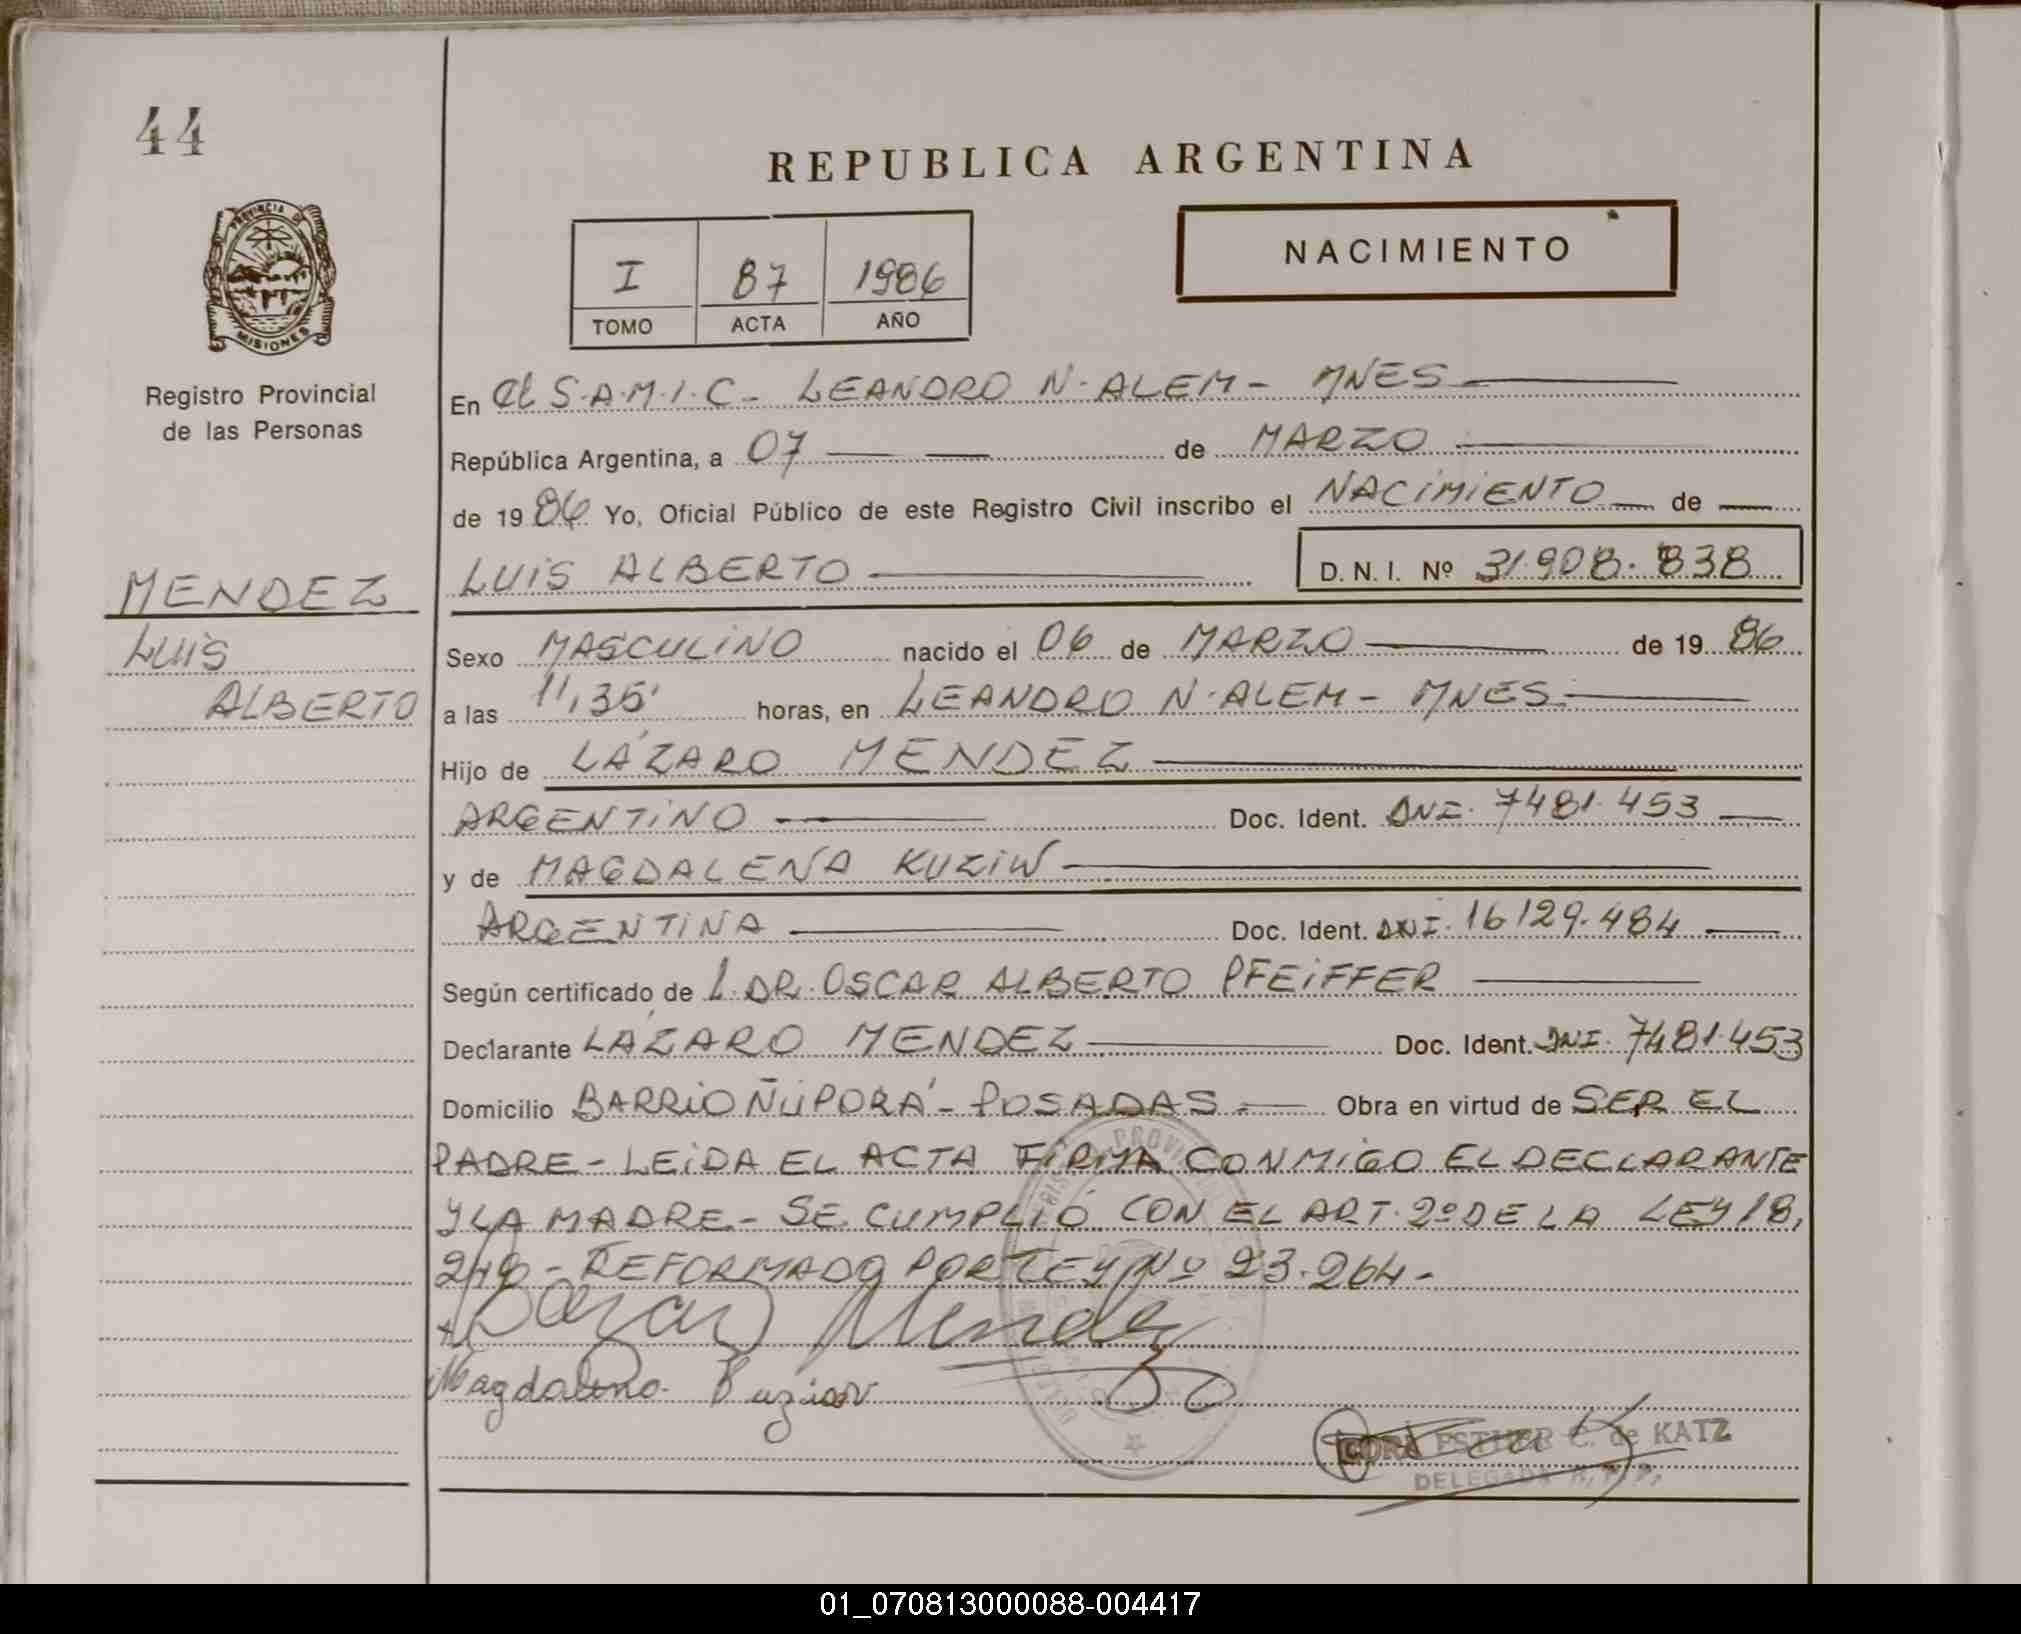 44
REPUBLICA ARGENTINA
NACIMIENTO
I 87 1986
TOMO ACTA AÑO
PROVINCIA DE
MISIONES
Registro Provincial
de las Personas
En el S.A.M.I.C - LEANDRO N. ALEM - MNES
República Argentina, a 07 de MARZO
de 1986 Yo, Oficial Público de este Registro Civil inscribo el NACIMIENTO de
LUIS ALBERTO D.N.I. Nº 31.908.838
MENDEZ
LUIS
ALBERTO
Sexo MASCULINO nacido el 06 de MARZO de 1986
a las 11,35' horas, en LEANDRO N. ALEM - MNES.
Hijo de LÁZARO MENDEZ
ARGENTINO Doc. Ident. DNI. 7481.453
y de MAGDALENA KUZIW
ARGENTINA Doc. Ident. DNI. 16129.484
Según certificado de L. DR. OSCAR ALBERTO PFEIFFER
Declarante LÁZARO MENDEZ Doc. Ident. DNI. 7481.453
Domicilio BARRIO ÑUPORÁ - POSADAS Obra en virtud de SER EL
PADRE - LEIDA EL ACTA FIRMA CONMIGO EL DECLARANTE
Y LA MADRE - SE CUMPLIÓ CON EL ART. 2º DE LA LEY 18.
248 - REFORMADO POR LEY Nº 23.264 -
Lazaro Mendez
Magdalena
ESTHER C. de KATZ
DELEGADA R.P.P.
01_070813000088-004417